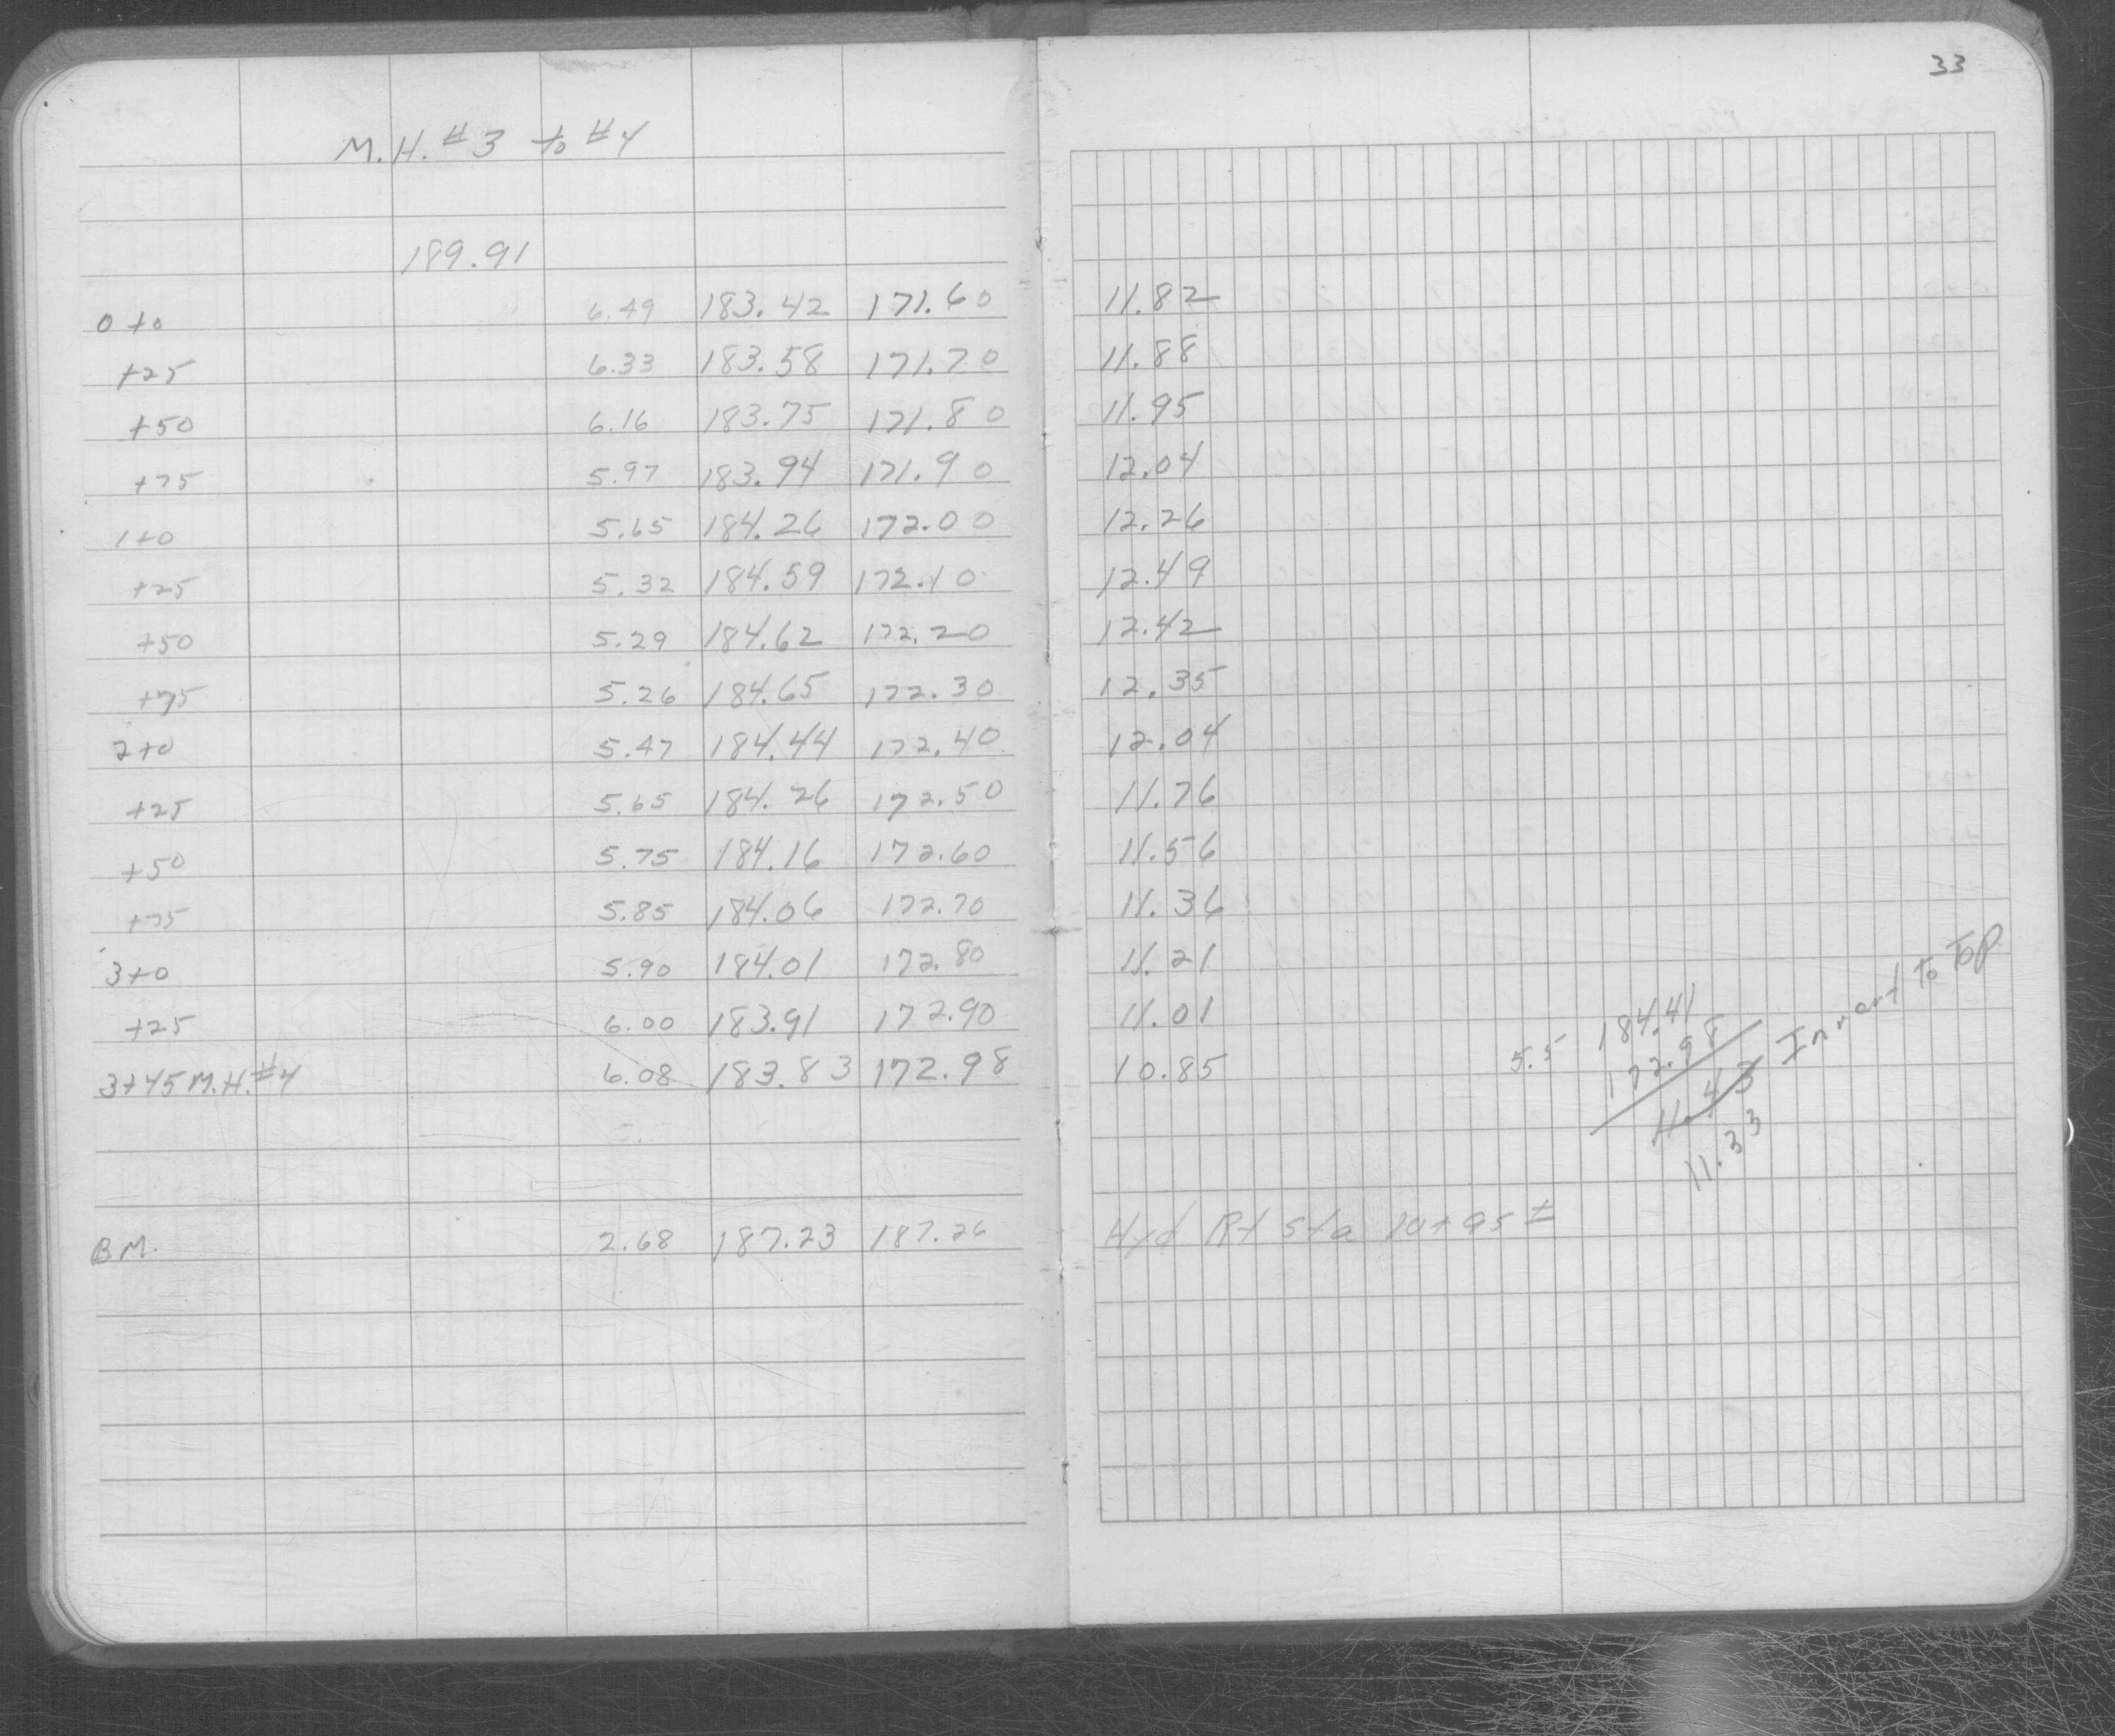 33
M.H. #3 to #4
189.91
0+0 6.49 183.42 171.60 11.82
+25 6.33 183.58 171.70 11.88
+50 6.16 183.75 171.80 11.95
+75 5.97 183.94 171.90 12.04
1+0 5.65 184.26 172.00 12.26
+25 5.32 184.59 172.10 12.49
+50 5.29 184.62 172.20 12.42
+75 5.26 184.65 172.30 12.35
2+0 5.47 184.44 172.40 12.04
+25 5.65 184.26 172.50 11.76
+50 5.75 184.16 172.60 11.56
+75 5.85 184.06 172.70 11.36
3+0 5.90 184.01 172.80 11.21
+25 6.00 183.91 172.90 11.01
3+45 M.H. #4 6.08 183.83 172.98 10.85
5.5 184.41
172.98
11.43 Invert To Top
11.33
BM. 2.68 187.23 187.26 Hyd Rt Sta 10+95 ±